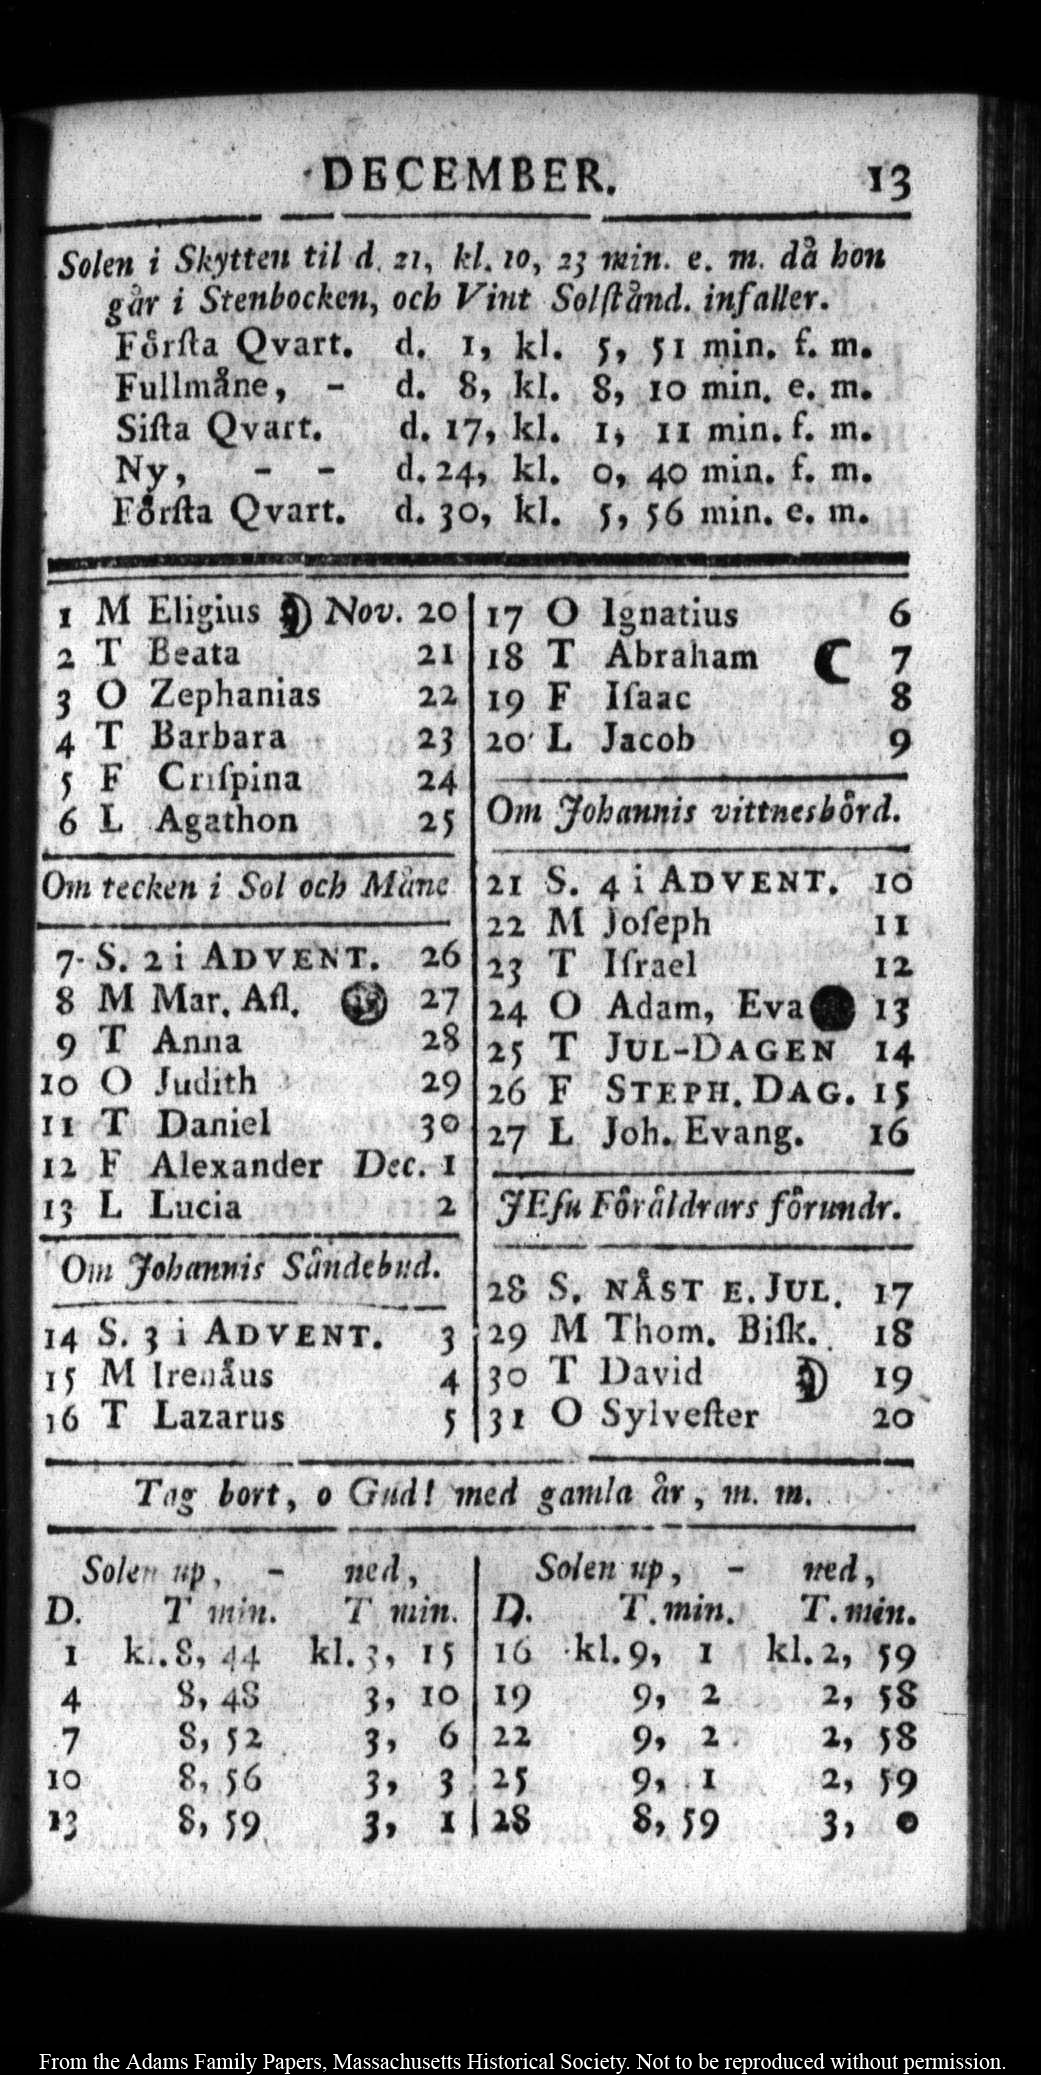 DECEMBER. 13
Solen i Skytten til d. 21, kl. 10, 23 min. e. m. då hon
går i Stenbocken, och Vint Solſtånd. infaller.
Fôrſta Qvart. d. 1, kl. 5, 51 min. f. m.
Fullmåne, - d. 8, kl. 8, 10 min. e. m.
Siſta Qvart. d. 17, kl. 1, 11 min. f. m.
Ny, - - d. 24, kl. 0, 40 min. f. m.
Fôrſta Qvart. d. 30, kl. 5, 56 min. e. m.
1 M Eligius Nov. 20
2 T Beata 21
3 O Zephanias 22
4 T Barbara 23
5 F Criſpina 24
6 L Agathon 25
Om tecken i Sol och Måne
7 S. 2 i ADVENT. 26
8 M Mar. Afl. 27
9 T Anna 28
10 O Judith 29
11 T Daniel 30
12 F Alexander Dec. 1
13 L Lucia 2
Om Johannis Såndebud.
14 S. 3 i ADVENT. 3
15 M Irenåus 4
16 T Lazarus 5
17 O Ignatius 6
18 T Abraham 7
19 F Iſaac 8
20 L Jacob 9
Om Johannis vittnesbôrd.
21 S. 4 i ADVENT. 10
22 M Joſeph 11
23 T Iſrael 12
24 O Adam, Eva 13
25 T JUL-DAGEN 14
26 F STEPH. DAG. 15
27 L Joh. Evang. 16
JEſu Fôråldrars fôrundr.
28 S. NÅST E. JUL. 17
29 M Thom. Biſk. 18
30 T David 19
31 O Sylveſter 20
Tag bort, o Gud! med gamla år, m. m.
Solen up, - ned,
D. T min. T min.
1 kl. 8, 44 kl. 3, 15
4 8, 48 3, 10
7 8, 52 3, 6
10 8, 56 3, 3
13 8, 59 3, 1
Solen up, - ned,
D. T. min. T. min.
16 kl. 9, 1 kl. 2, 59
19 9, 2 2, 58
22 9, 2 2, 58
25 9, 1 2, 59
28 8, 59 3, 0
From the Adams Family Papers, Massachusetts Historical Society. Not to be reproduced without permission.